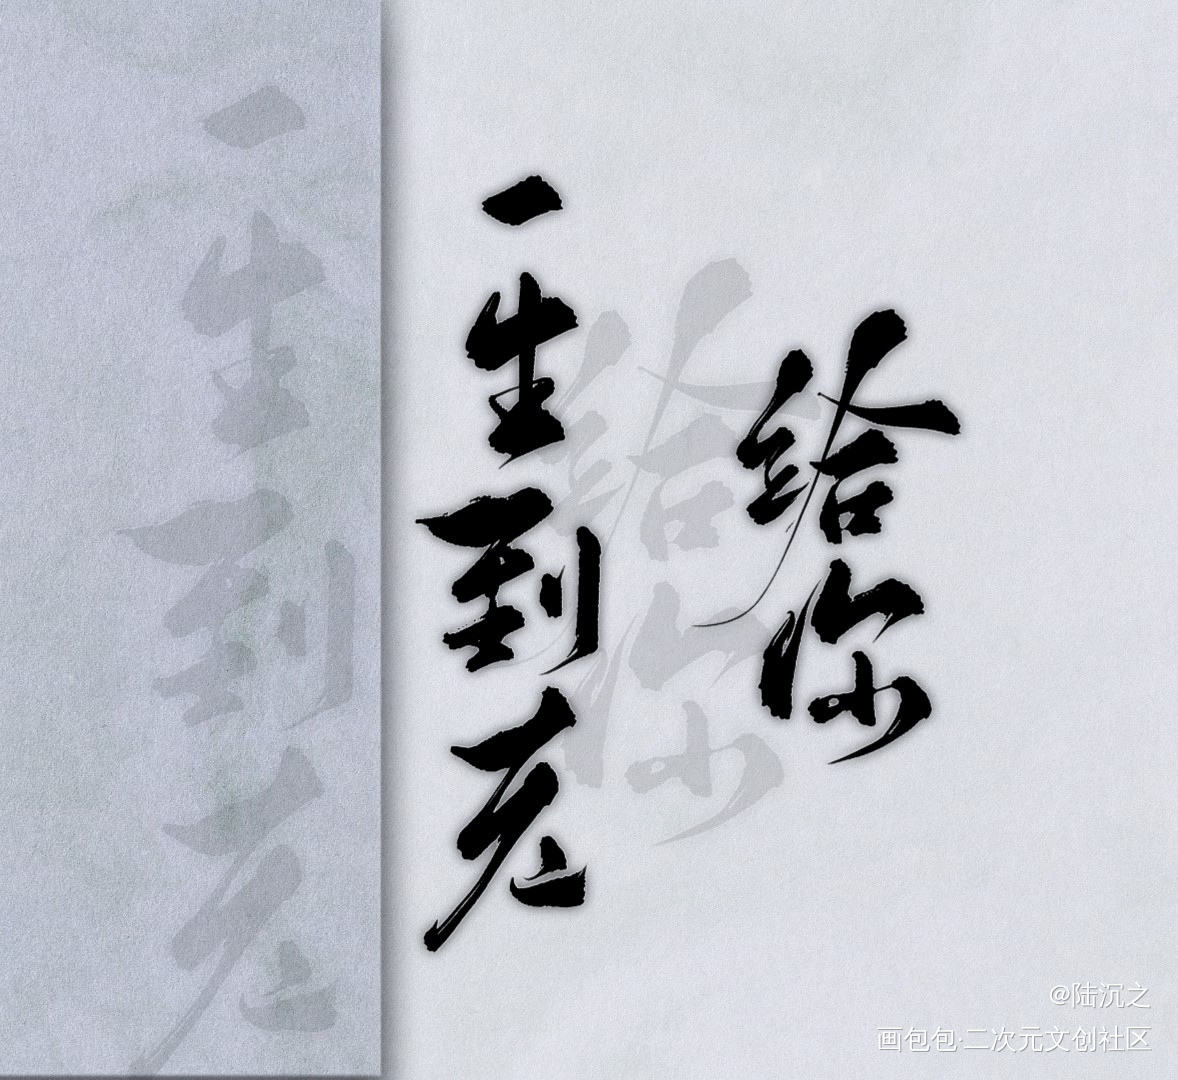 给你
一生到老
给你
一生到老
@陆沉之
画包包·二次元文创社区